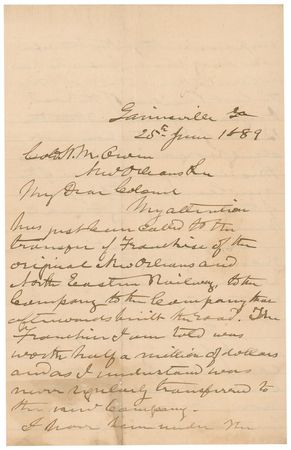 Gainesville Ga
25th June 1889
Col. W. M. Owen
New Orleans La
My Dear Colonel
My attention
has just been called to the
transfer of Franchise of the
original New Orleans and
North Eastern Railway, to the
Company to the Company that
afterwards built the road. The
Franchise I am told was
worth half a million of dollars
and as I understand was
never regularly transferred to
the new Company.
I have been under the